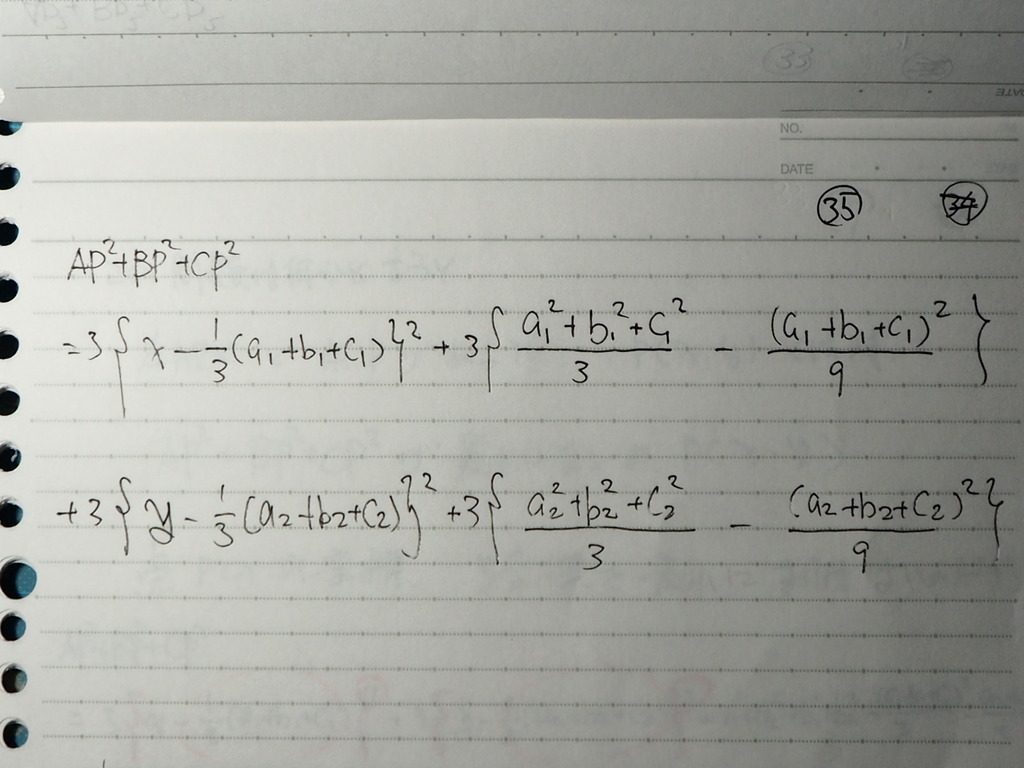 NO.
DATE
35 34
AP²+BP²+CP²
=3{x-1/3(a₁+b₁+c₁)}²+3{(a₁²+b₁²+c₁²)/3-(a₁+b₁+c₁)²/9}
+3{y-1/3(a₂+b₂+c₂)}²+3{(a₂²+b₂²+c₂²)/3-(a₂+b₂+c₂)²/9}